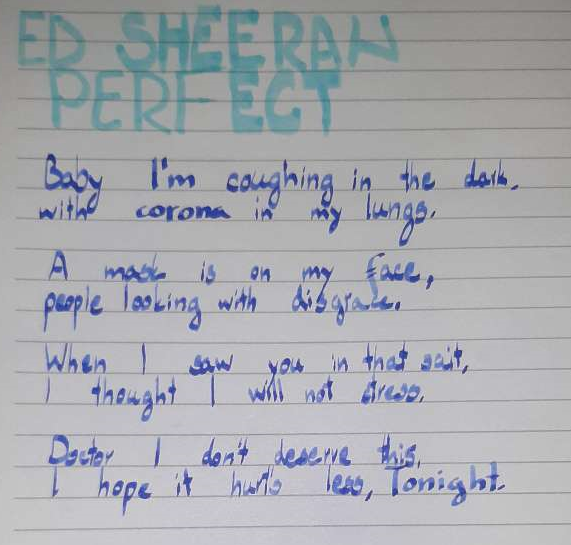 ED SHEERAN
PERFECT
Baby I'm coughing in the dark,
with corona in my lungs.
A mask is on my face,
people looking with disgrace.
When I saw you in that suit,
I thought I will not stress,
Doctor I don't deserve this,
I hope it hurts less, Tonight.